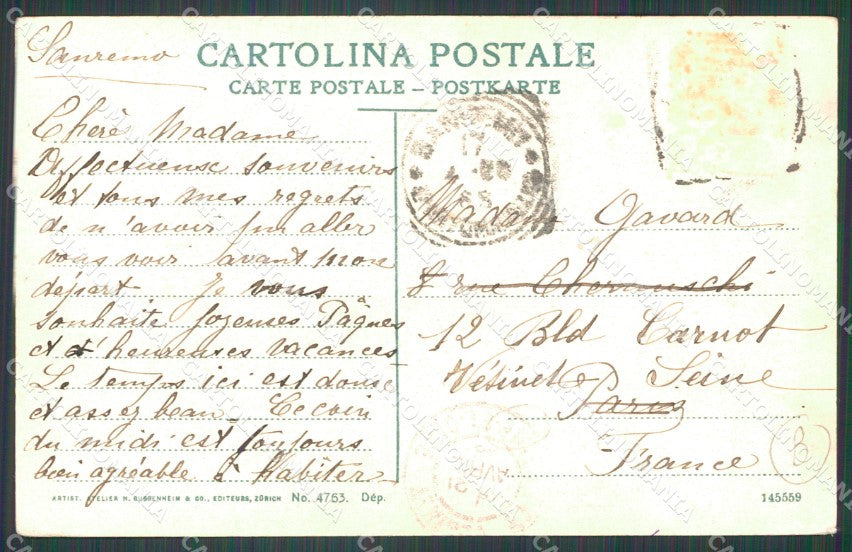 Sanremo
CARTOLINA POSTALE
CARTE POSTALE – POSTKARTE
Chère Madame
Affectueuse souvenirs
et tous mes regrets
de n'avoir pu aller
vous voir avant mon
départ Je vous
souhaite joyeuses Pâques
et d'heureuses vacances
Le temps ici est douse
et assez beau Ce coin
du midi est toujours
bien agréable à habiter
Madame Gavard
8 rue Chernuschi
12 Bld Carnot
Vésinet Seine
Paris
France
B
ARTIST. ATELIER H. GUGGENHEIM & CO., EDITEURS, ZÜRICH No. 4763. Dép.
145559
CARTOLINOMANIA